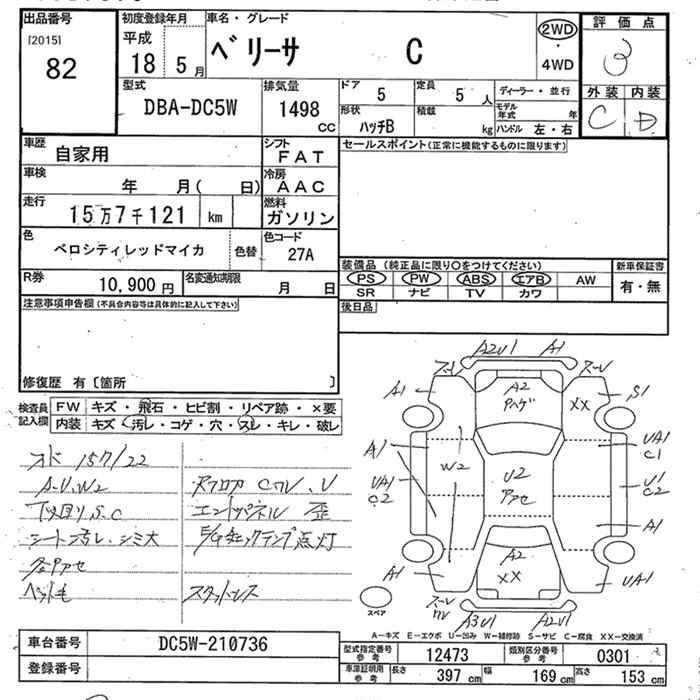 出品番号 初度登録年月 車名・グレード 評価点
[2015] 82 平成 18 5月 ベリーサ C 2WD ・ 4WD 3
型式 排気量 ドア 5 定員 5人 ディーラー・並行 外装 内装
DBA-DC5W 1498 CC 形状 ハッチB 積載 kg モデル年式 年 ハンドル 左・右 C D
車歴 自家用 シフト FAT セールスポイント(正常に機能するものに限ります)
車検 年 月( 日) 冷房 AAC
走行 15万7千121 km 燃料 ガソリン
色 ベロシティレッドマイカ 色替 色コード 27A
装備品(純正品に限り○をつけてください) 新車保証書
R券 10,900円 名変通知期限 月 日 PS PW ABS エアB AW 有・無
SR ナビ TV カワ
注意事項申告欄(不具合内容等は具体的に記入して下さい) 後日品
修復歴 有〔箇所 〕
検査員記入欄 FW キズ・飛石・ヒビ割・リペア跡・×要
内装 キズ・汚レ・コゲ・穴・スレ・キレ・破レ
157/22
A-U、W2
下回りS、C
シート汚レ、シミ大 点灯
エンドパネル 歪
スタッドレス
A2U1 A1
A1 A2 XX S1
A1 W2 UA1 C1
UA1 C2 U2 U1 C2
A1
A2 XX
A1 UA1
スペア A3U1 A2U1
A-キズ E-エクボ U-凹み W-補修跡 S-サビ C-腐食 XX-交換済
車台番号 DC5W-210736 型式指定番号 参考 12473 類別区分番号 参考 0301
登録番号 車庫証明用 参考 長さ 397 cm 幅 169 cm 高さ 153 cm